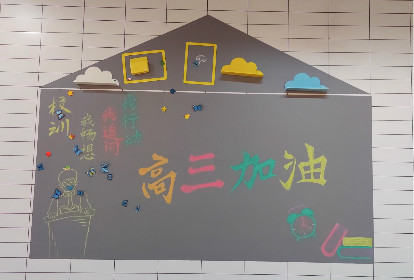 校训
我畅想
我追问
我行动
高三加油